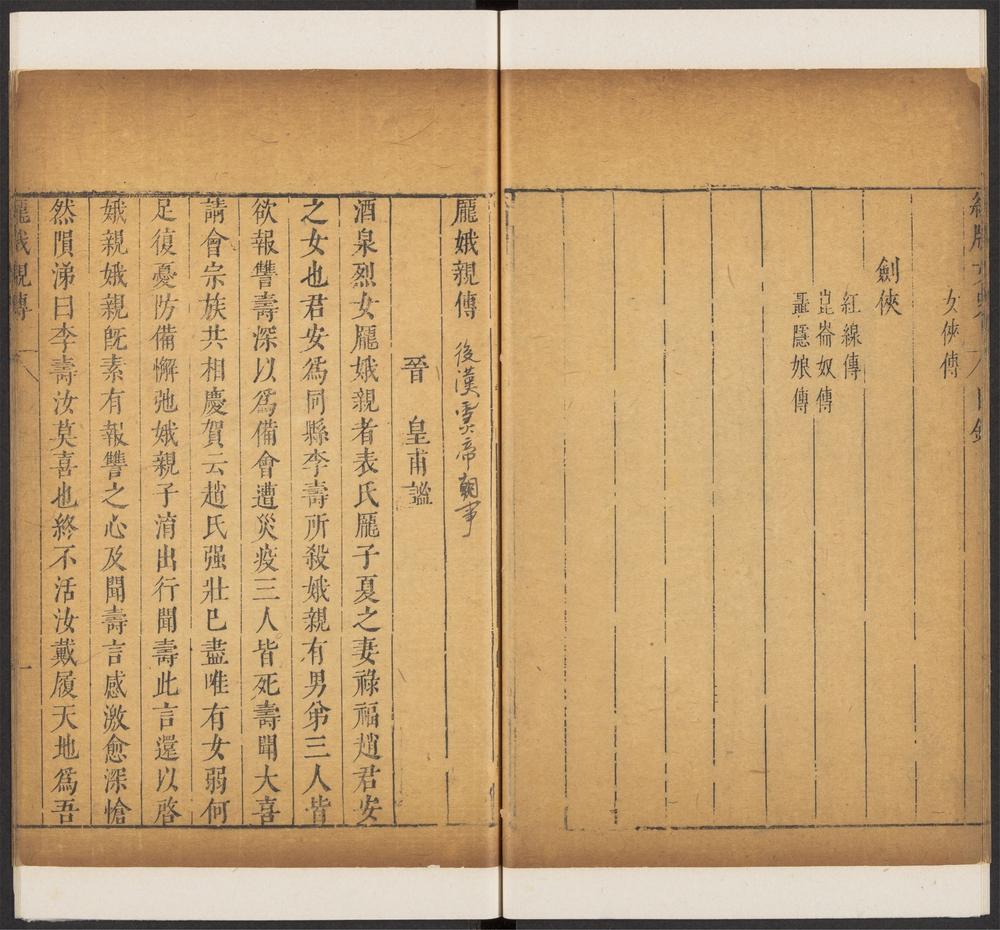 女俠傳
劍俠
紅線傳
崑崙奴傳
聶隱娘傳
龐娥親傳 後漢靈帝朝事
晉 皇甫謐
酒泉烈女龐娥親者表氏龐子夏之妻祿福趙君安
之女也君安爲同縣李壽所殺娥親有男弟三人皆
欲報讐壽深以爲備會遭災疫三人皆死壽聞大喜
請會宗族共相慶賀云趙氏强壯已盡唯有女弱何
足復憂防備懈弛娥親子淯出行聞壽此言還以啓
娥親娥親旣素有報讐之心及聞壽言感激愈深愴
然隕涕曰李壽汝莫喜也終不活汝戴履天地爲吾
龐娥親傳 一